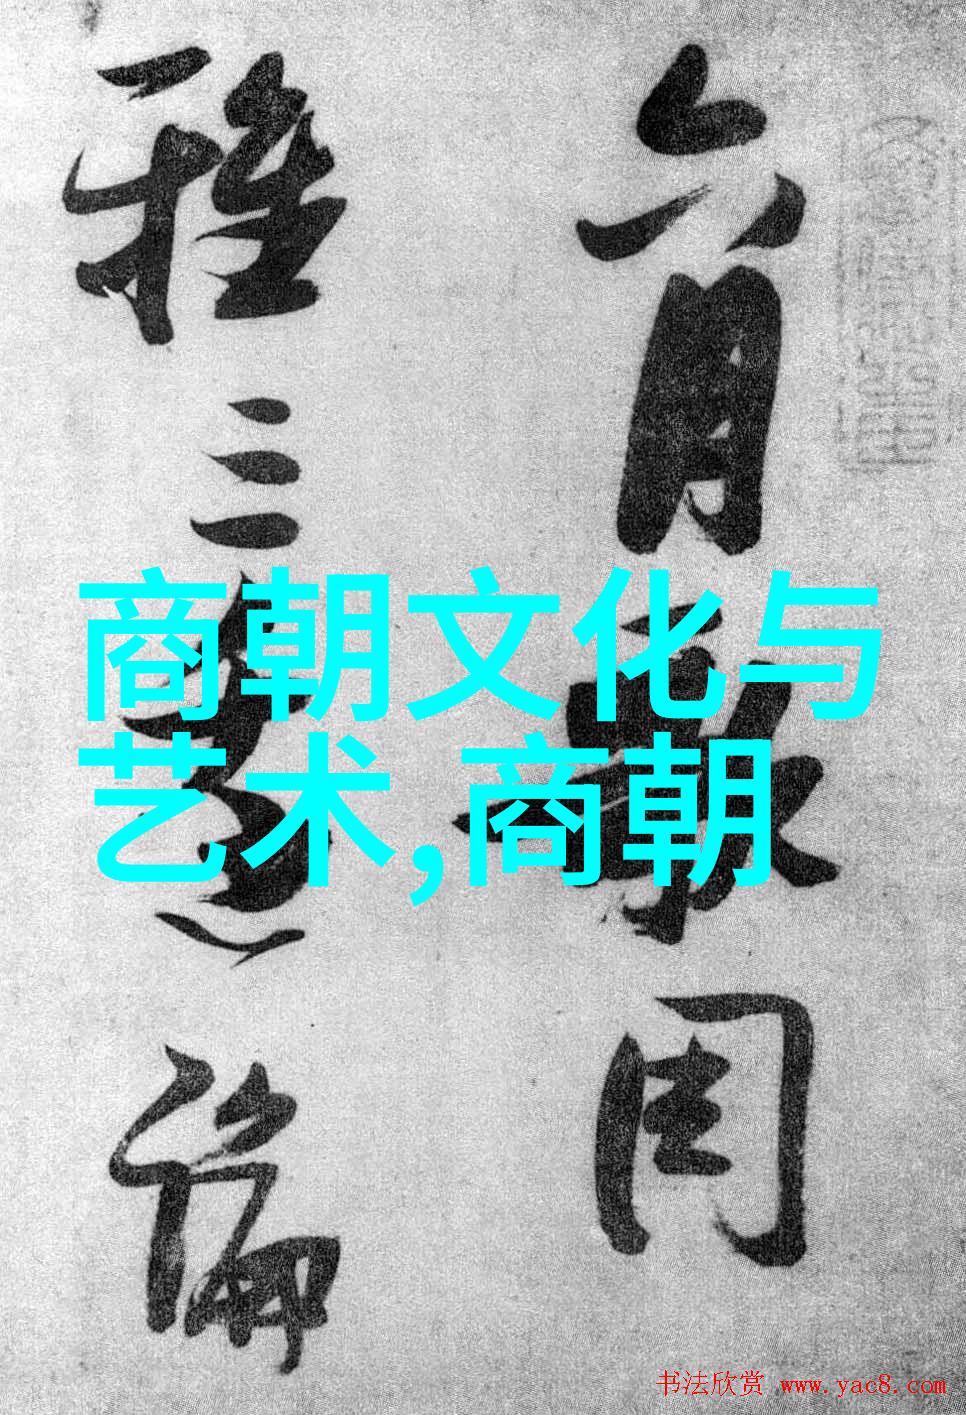 六月周
三論
商朝文化与
艺术,商朝
书法欣赏 www.yac8.com